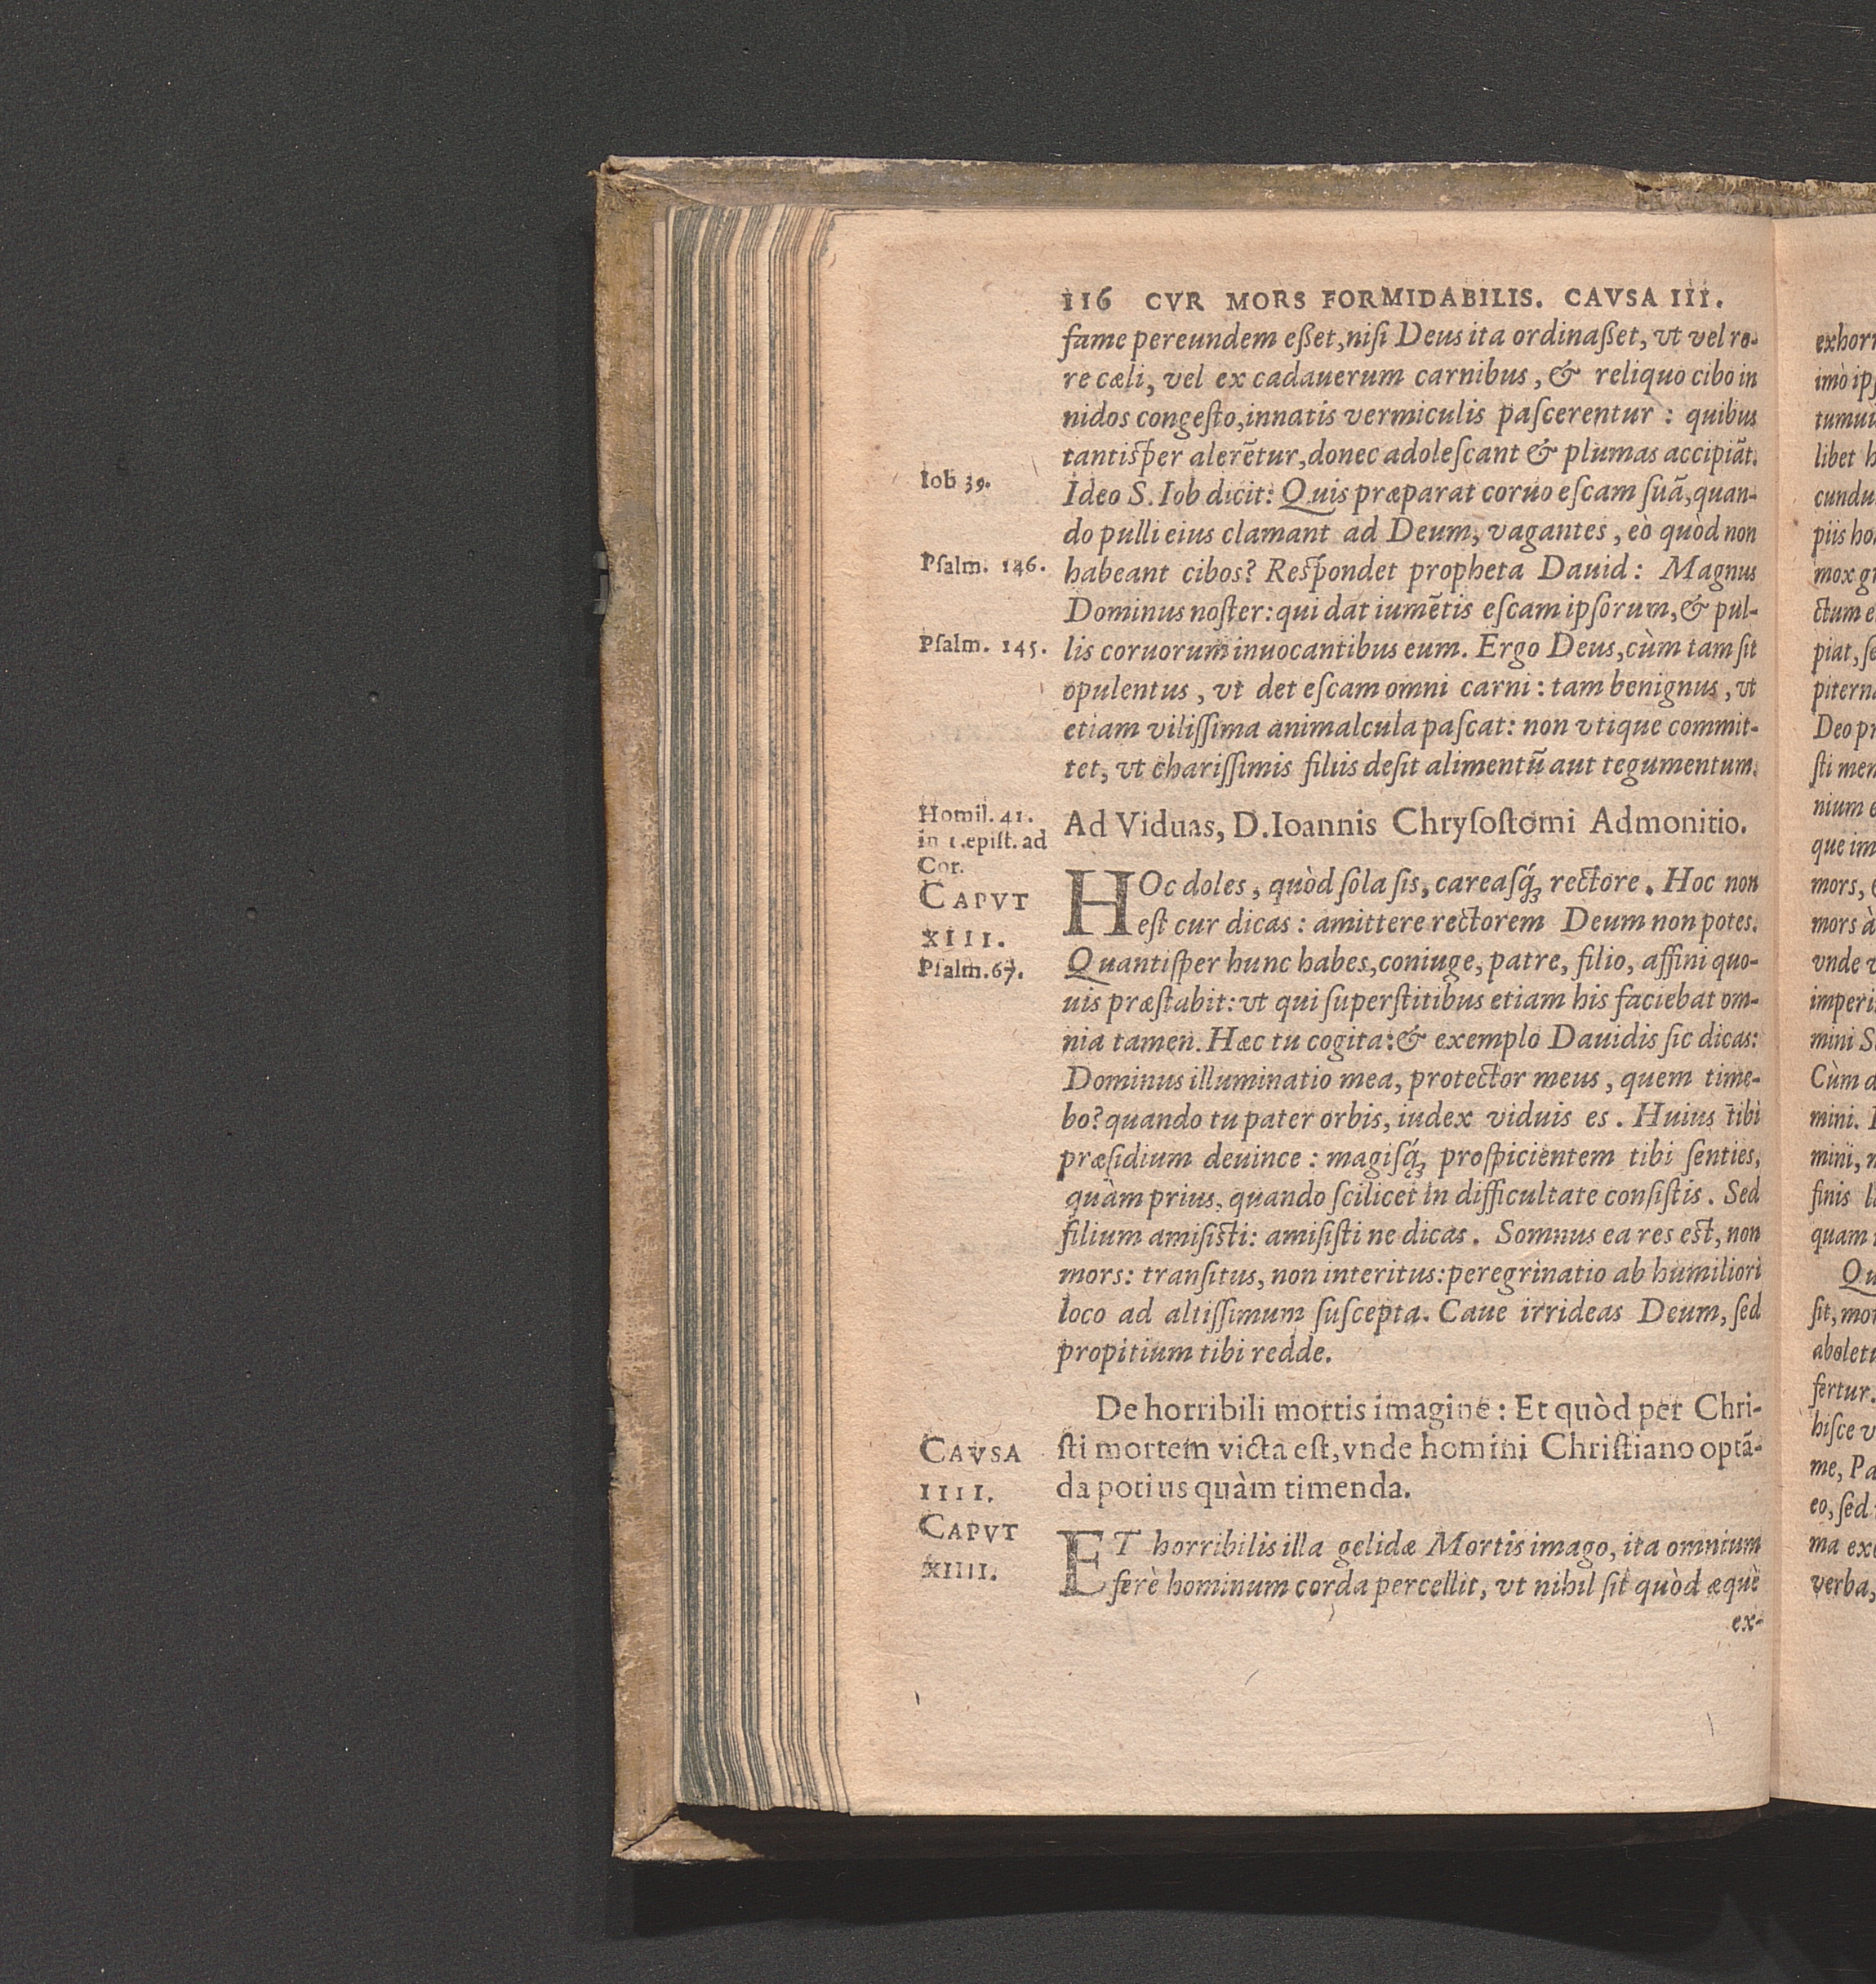 116 CVR MORS FORMIDABILIS. CAVSA III.
fame pereundem eßet, niſi Deus ita ordinaßet, vt vel ro-
re cæli, vel ex cadauerum carnibus, & reliquo cibo in
nidos congeſto, innatis vermiculis paſcerentur : quibus
tantiſper alerẽtur, donec adoleſcant & plumas accipiãt.
Iob 39.
Ideo S. Iob dicit: Quis præparat coruo eſcam ſuã, quan-
do pulli eius clamant ad Deum, vagantes, eò quòd non
Pſalm. 146.
habeant cibos? Reſpondet propheta Dauid : Magnus
Dominus noſter: qui dat iumẽtis eſcam ipſorum, & pul-
Pſalm. 145.
lis coruorum inuocantibus eum. Ergo Deus, cùm tam ſit
opulentus, vt det eſcam omni carni : tam benignus, vt
etiam viliſſima animalcula paſcat: non vtique commit-
tet, vt chariſſimis filiis deſit alimentũ aut tegumentum.
Homil. 41.
in 1. epiſt. ad
Cor.
Ad Viduas, D. Ioannis Chryſoſtomi Admonitio.
CAPVT
XIII.
Pſalm. 67.
HOc doles, quòd ſola ſis, careaſq́; rectore. Hoc non
eſt cur dicas : amittere rectorem Deum non potes.
Quantiſper hunc habes, coniuge, patre, filio, affini quo-
uis præſtabit: vt qui ſuperſtitibus etiam his faciebat om-
nia tamen. Hæc tu cogita: & exemplo Dauidis ſic dicas:
Dominus illuminatio mea, protector meus, quem time-
bo? quando tu pater orbis, iudex viduis es. Huius tibi
præſidium deuince : magiſq́; proſpicientem tibi ſenties,
quàm prius, quando ſcilicet in difficultate conſiſtis. Sed
filium amiſiſti: amiſiſti ne dicas. Somnus ea res eſt, non
mors: tranſitus, non interitus: peregrinatio ab humiliori
loco ad altiſſimum ſuſcepta. Caue irrideas Deum, ſed
propitium tibi redde.
CAVSA
IIII.
De horribili mortis imagine : Et quòd per Chri-
ſti mortem victa eſt, vnde homini Chriſtiano optã-
da potius quàm timenda.
CAPVT
XIIII.
ET horribilis illa gelidæ Mortis imago, ita omnium
ferè hominum corda percellit, vt nihil ſit quòd æquè
ex-
exhorr
imò ip
tumui
libet h
cundu
piis ho
mox g
ctum e
piat, ſe
pitern
Deo pr
ſti mer
nium e
que im
mors,
mors à
vnde v
imperi
mini S
Cùm d
mini.
mini,
finis l
quam
Qu
ſit, mo
abolet
fertur.
hiſce v
me, Pa
eo, ſed
ma ex
verba,